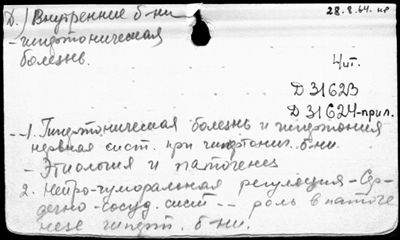 Д.) Внутренние б-ни
28.8.64.
- гипертоническая
болезнь.
Чит.
Д 31623
Д 31624-прил.
1. Гипертоническая болезнь и
нервная сист. при гипертонич. б-ни.
- Этиология и патогенез
2. Нейро-гуморальная регуляция - Сер-
дечно-сосуд. сист -- роль в патоге-
незе гиперт. б-ни.